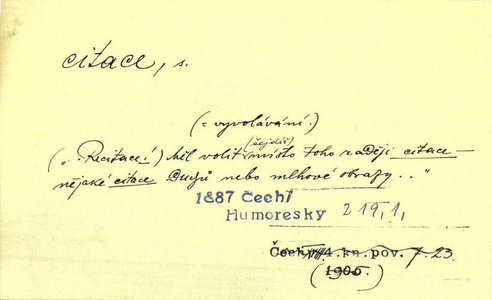 citace, s.
(= vyvolávání.)
(„Recitace!) Měl volit (šejdíř) místo toho raději citace –
nějaké citace Duchů nebo mlhové obrazy.."
1887 Čech!
Humoresky 219,1,
Čech, 4.kn.pov. 7.23
(1905)